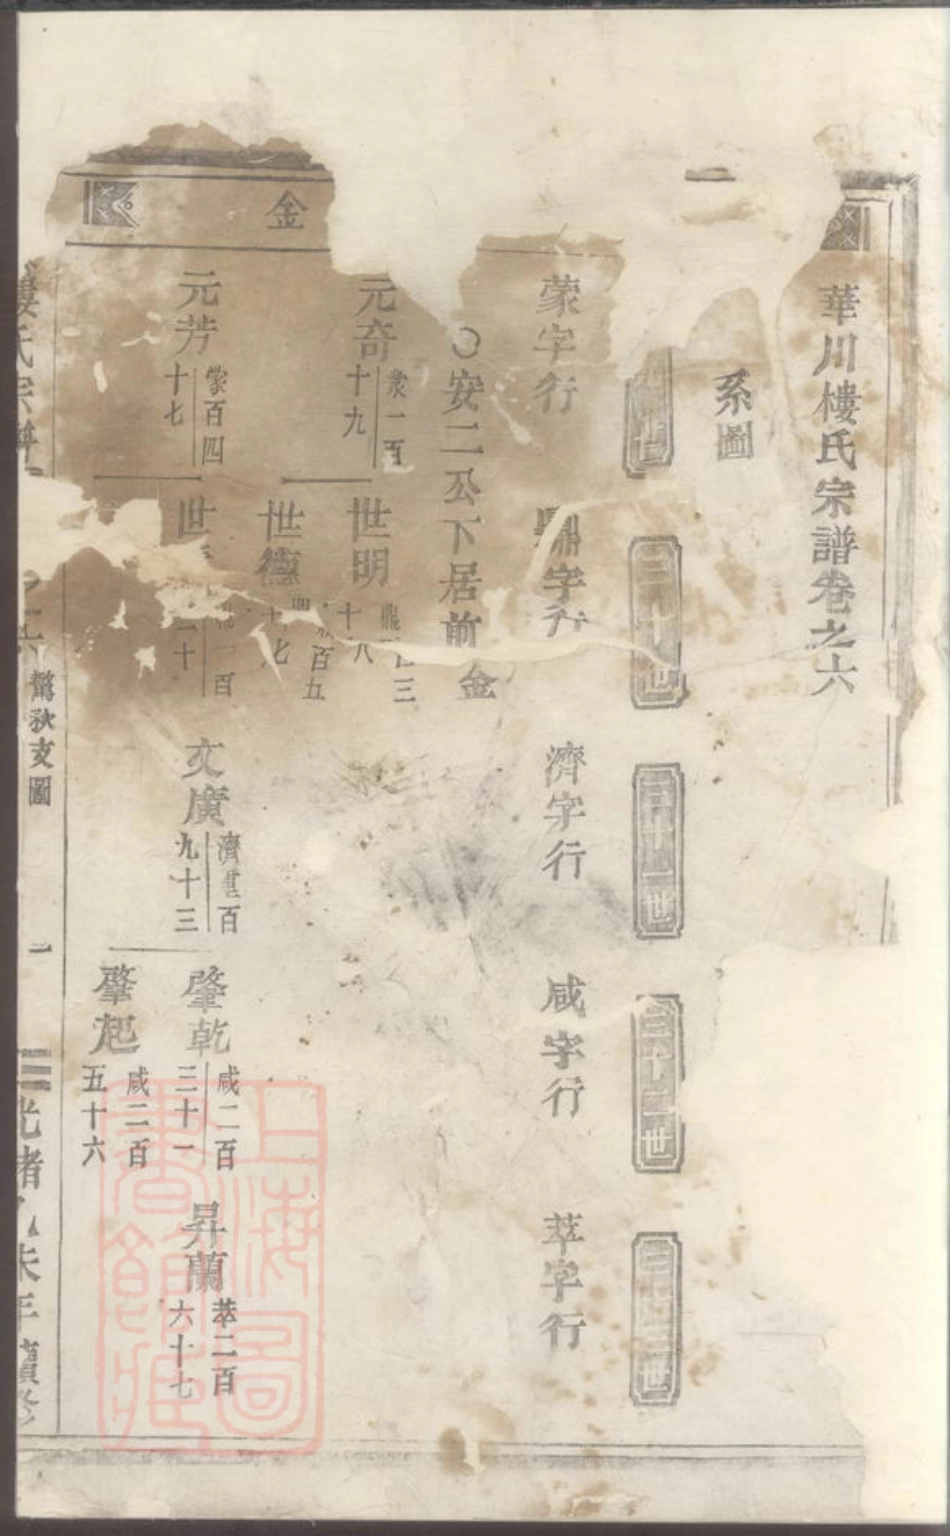 華川樓氏宗譜卷之六
系圖
三十世
三十一世
三十二世
三十三世
蒙字行
鼎字行
濟字行
咸字行
萃字行
〇安二公下居前金
金
元奇
蒙一百
十九
世明
十八
世德
百五
十七
元芳
蒙百四
十七
世
一百
二十
文廣
濟壹百
九十三
肇乾
咸二百
三十一
肇起
咸二百
五十六
昇蘭
萃二百
六十七
樓氏宗譜
之六
秋支圖
一
光緒乙未年續修
上海圖書館藏